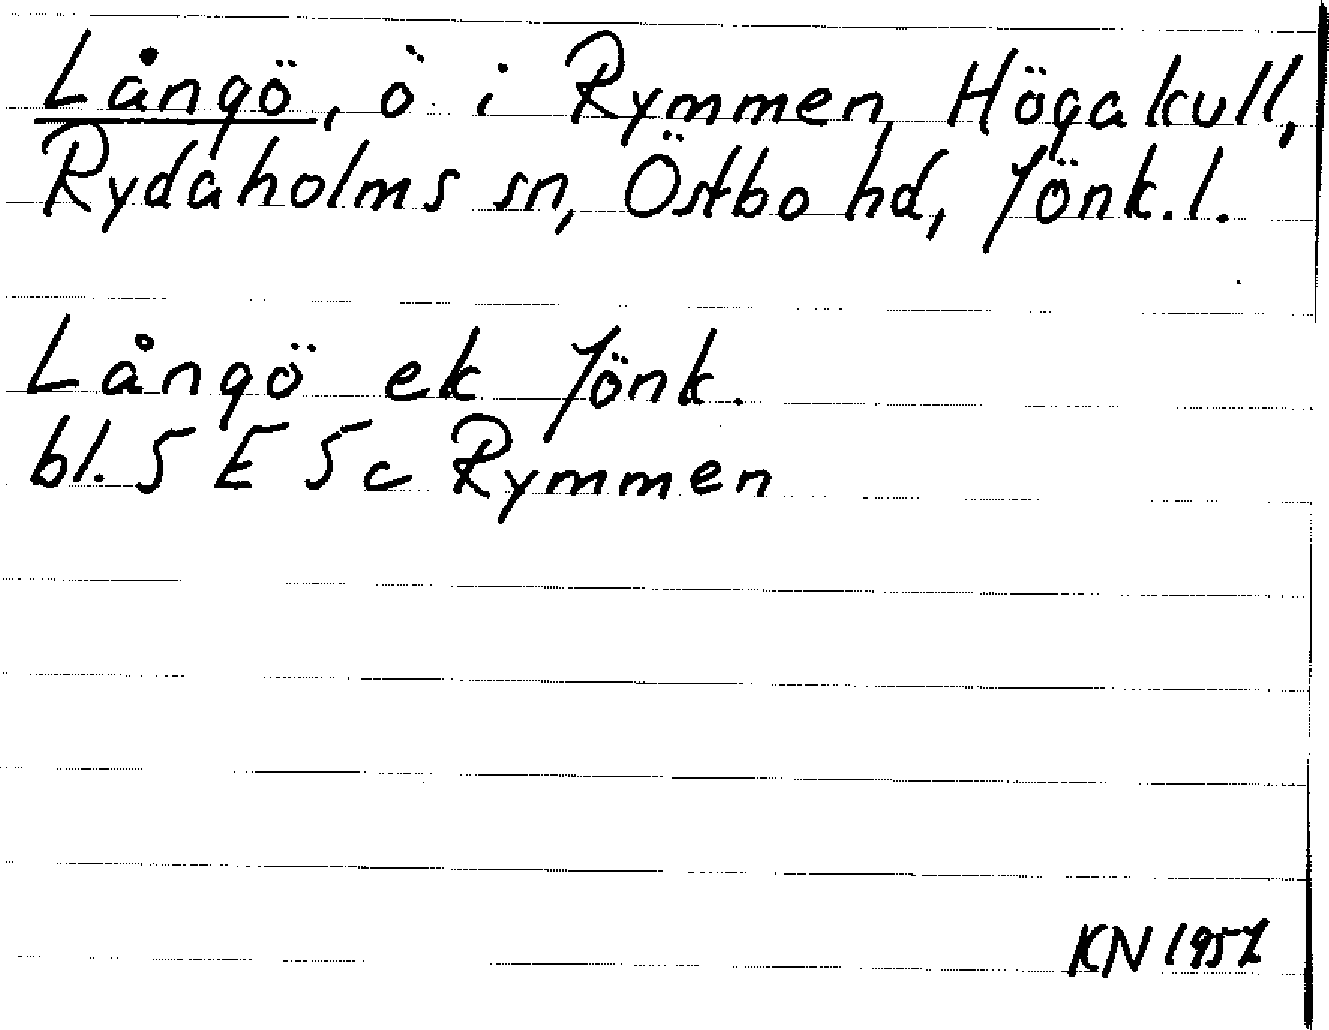 Långö, ö i Rymmen, Högakull,
Rydaholms sn, Östbo hd, Jönk.l.
Långö ek Jönk.
bl. 5 E 5c Rymmen
KN 1957